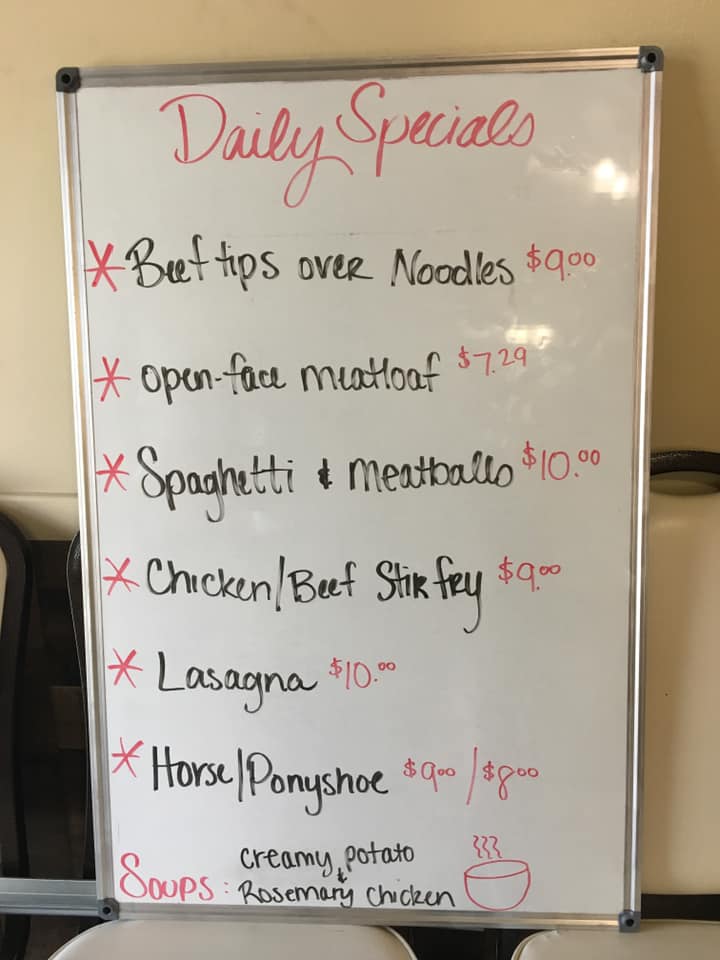 Daily Specials
* Beef tips over Noodles $9.00
* Open-face meatloaf $7.29
* Spaghetti & Meatballs $10.00
* Chicken/Beef Stir fry $9.00
* Lasagna $10.00
* Horse/Ponyshoe $9.00/$8.00
Soups: creamy potato
& Rosemary chicken